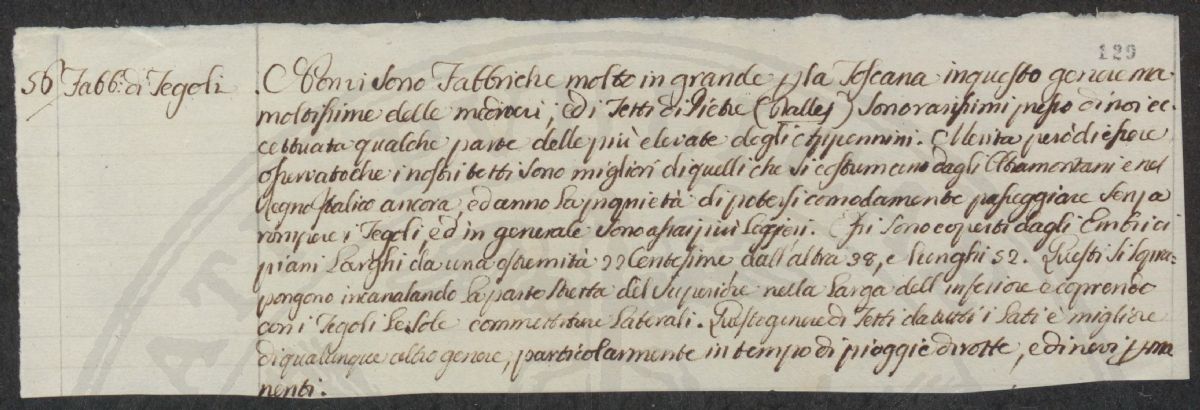 129
56 Fabb.e di Tegoli. Non vi sono Fabbriche molto in grande p la Toscana in questo genere ma
moltissime delle mediocri; ed i Tetti di Pietre (Dalles) sono rarissimi presso di noi ec-
cettuata qualche parte delle più elevate degli Appennini. Merita però di essere
osservato che i nostri tetti sono migliori di quelli che si costumano dagli Oltramontani e nel
Regno Italico ancora, ed anno la proprietà di potersi comodamente passeggiare senza
rompere i Tegoli, ed in generale sono assai più leggieri. Essi sono coperti dagli Embrici
piani larghi da una estremità 22 Centesime dall'altra 38, e lunghi 52. Questi si sopra-
pongono incanalando la parte stretta del superiore nella larga dell'inferiore e coprendo
con i Tegoli le sole commettiture laterali. Questo genere di Tetti da tutti i lati è migliore
di qualunque altro genere, particolarmente in tempo di pioggie dirotte, e di nevi pma
nenti.